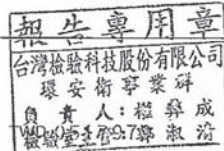 報告專用章
台灣檢驗科技股份有限公司
環安衛事業群
負責人：成
檢驗室主管：淑清